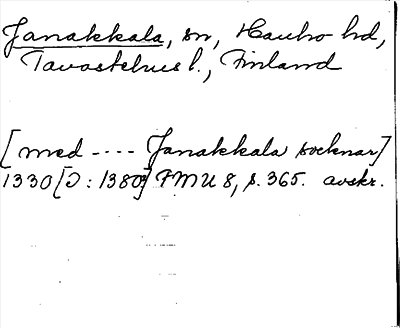 Janakkala, sn, Hauho hd,
Tavastehus l., Finland
[med ---- Janakkala socknar]
1330 [O: 1380] FMU 8, s. 365. avskr.